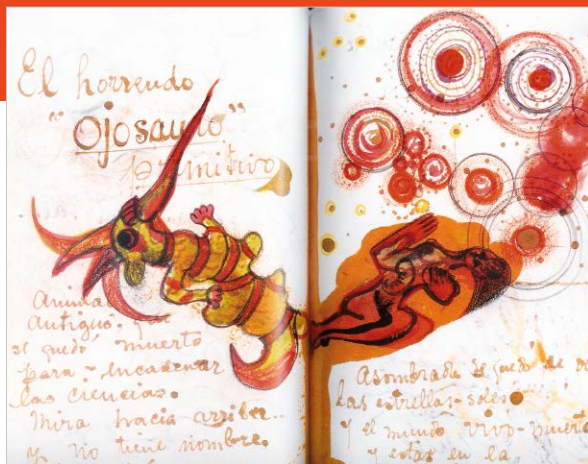 El horrendo
"Ojosauro"
primitivo
Animal
antiguo, que
se quedó muerto
para encadenar
las ciencias.
Mira hacia arriba..
y no tiene nombre.
Asombrada se quedó de
las estrellas-soles
y el mundo vivo-muerto
y estar en la